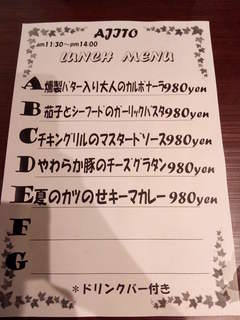 AJITO
am11:30～pm14:00
LUNCH MENU
A 燻製バター入り大人のカルボナーラ980yen
B 茄子とシーフードのガーリックパスタ980yen
C チキングリルのマスタードソース980yen
D やわらか豚のチーズグラタン 980yen
E 夏のカツのせキーマカレー 980yen
F
G
＊ドリンクバー付き